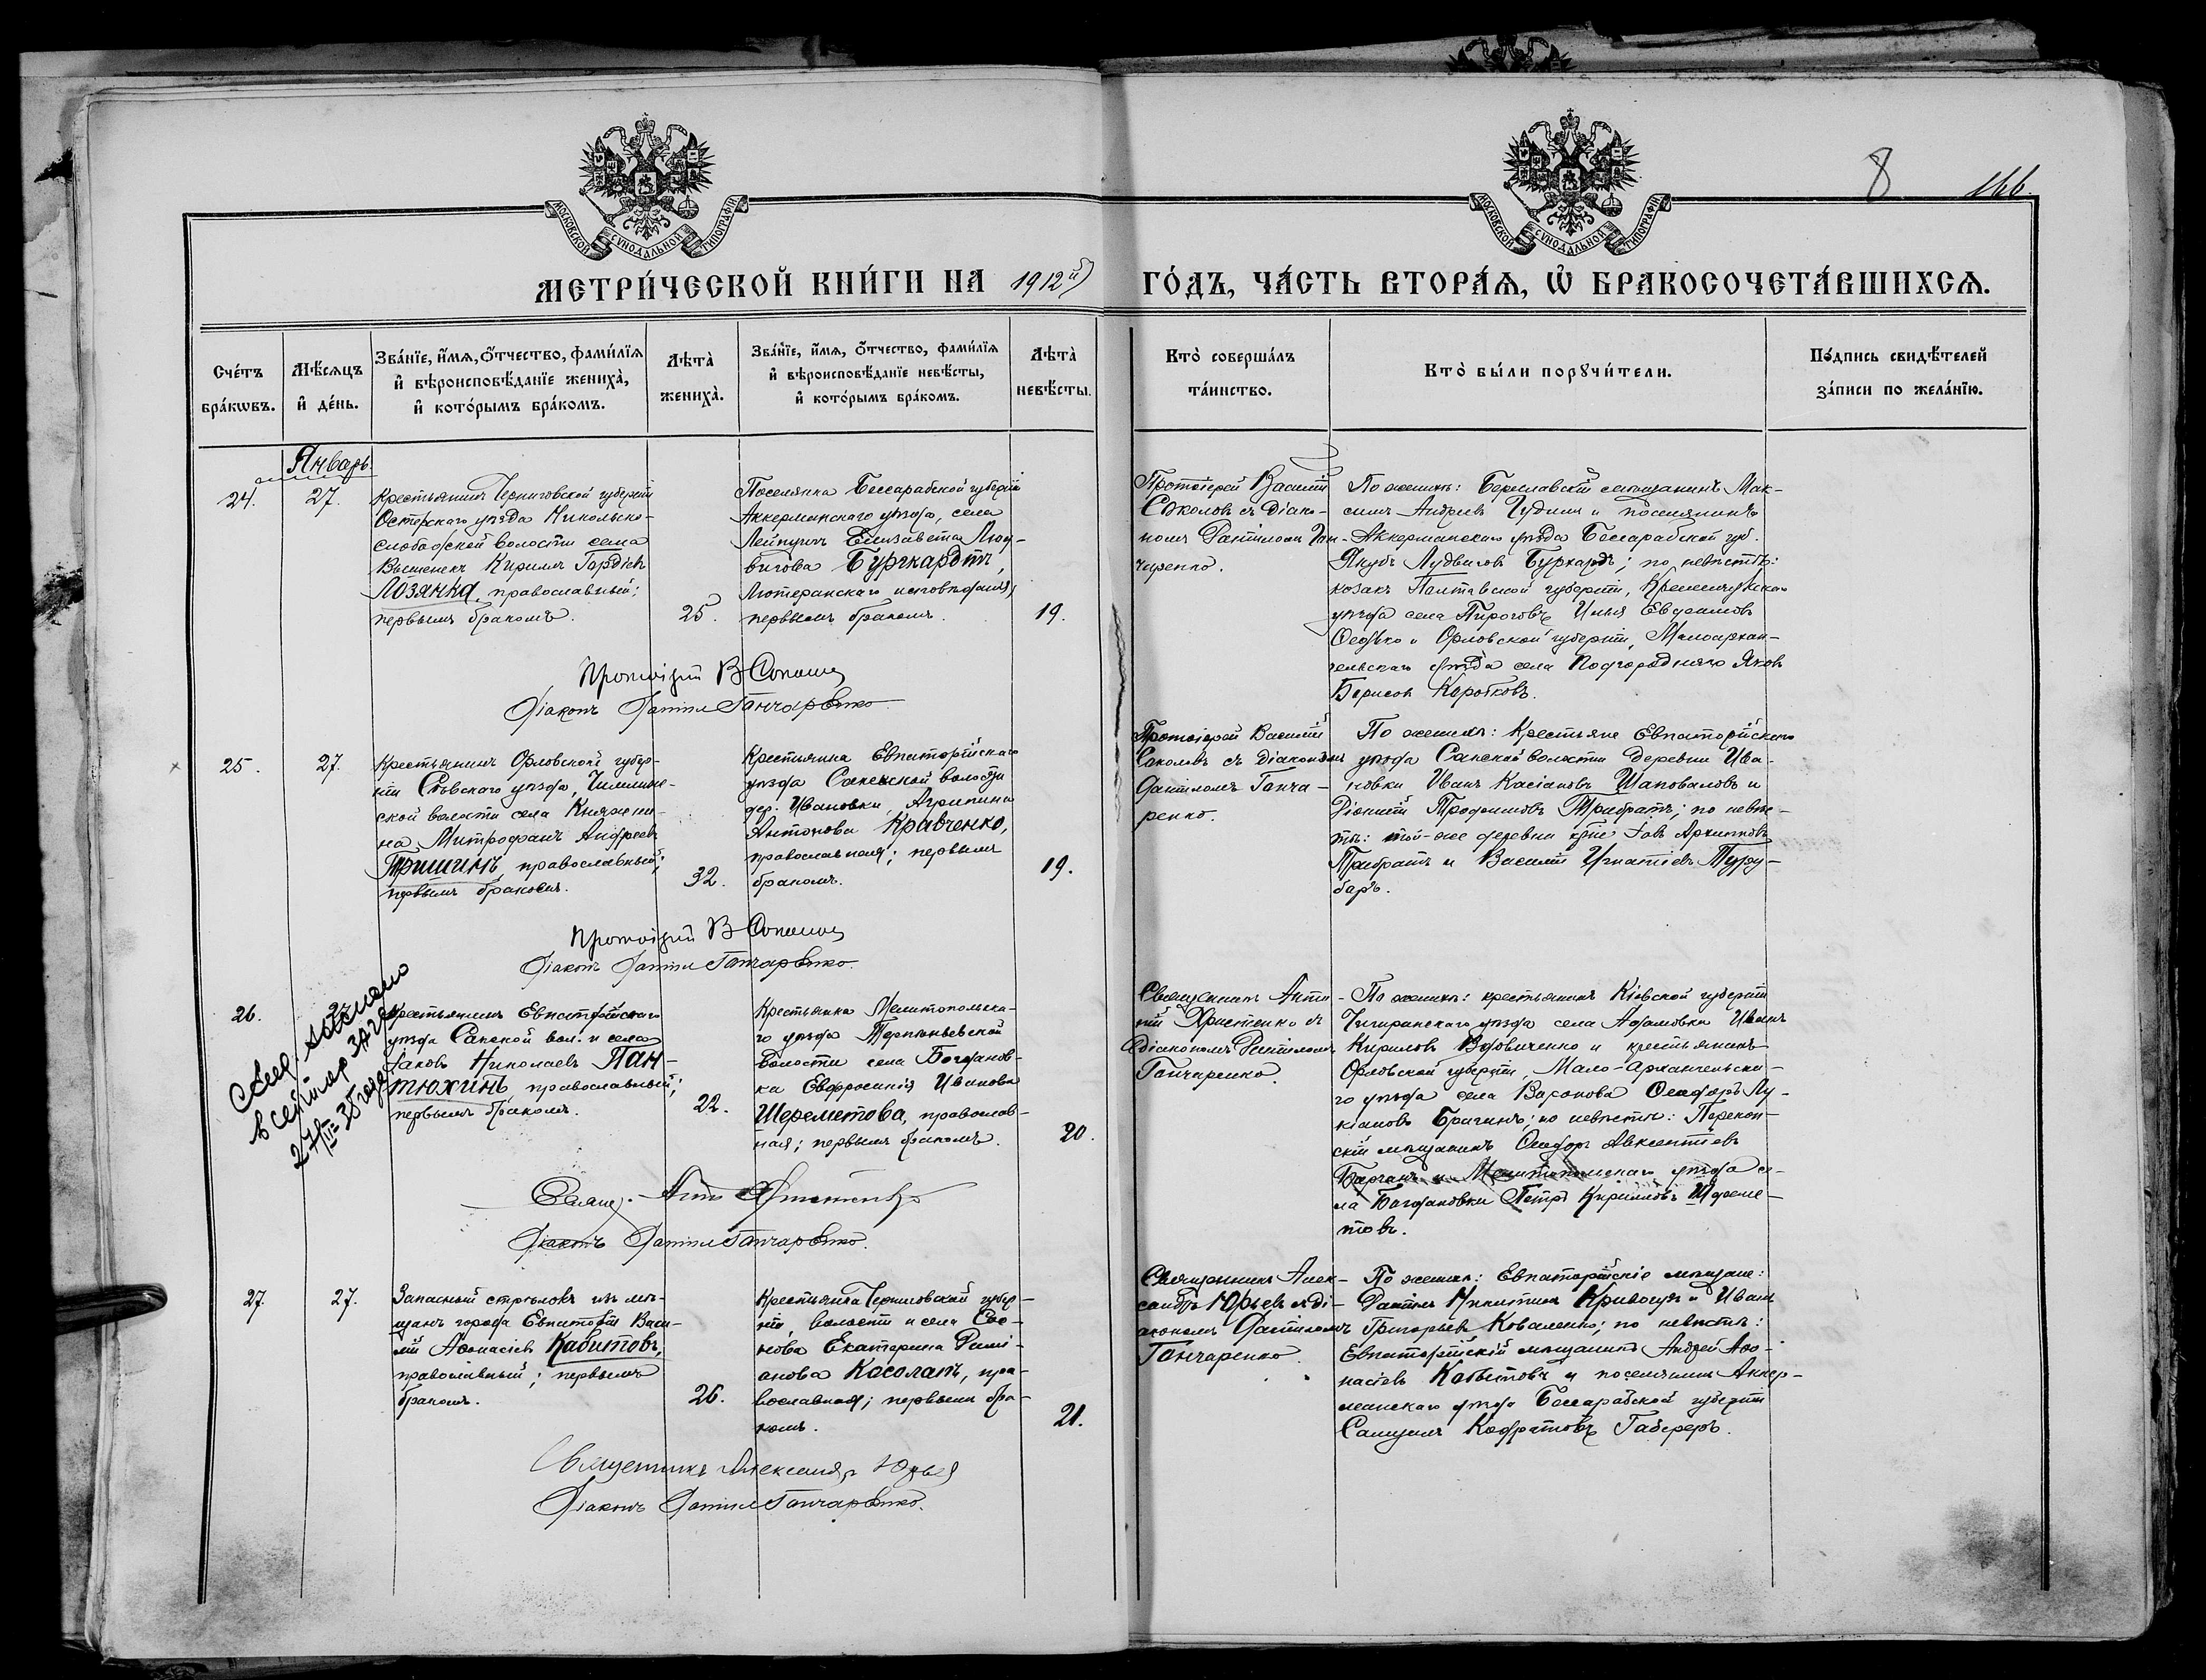 МОСКОВСКОЙ СѴНОДАЛЬНОЙ ТИПОГРАФІИ
МОСКОВСКОЙ СѴНОДАЛЬНОЙ ТИПОГРАФІИ
8
166.
МЕТРИ́ЧЕСКОЙ КНИ́ГИ НА 1912й
ГО́ДЪ, ЧА́СТЬ ВТОРА́Ѧ, Ѽ БРАКОСОЧЕТА́ВШИХСѦ.
Сче́тъ бра́кѡвъ.
Мѣ́сѧцъ и҆ де́нь.
Зва́нїе, и҆́мѧ, ѻ҆́тчество, фамі́лїѧ
и҆ вѣроисповѣ́данїе жениха̀,
и҆ кото́рымъ бра́комъ.
Лѣта̀ жениха̀.
Зва́нїе, и҆́мѧ, ѻ҆́тчество, фамі́лїѧ
и҆ вѣроисповѣ́данїе невѣ́сты,
и҆ кото́рымъ бра́комъ.
Лѣта̀ невѣ́сты.
Кто̀ соверша́лъ та́инство.
Кто̀ бы́ли порꙋчи́тели.
По́дпись свидѣ́телей за́писи по жела́нїю.
Январь
24.
27.
Крестьянинъ Черниговской губерніи
Остерскаго уѣзда Никольско-
слободской волости села
Вишенекъ Кириллъ Гордіевъ
Лозянка, православный;
первымъ бракомъ.
25.
Поселянка Бессарабской губерніи
Аккерманскаго уѣзда, села
Лейпцигъ Елизавета Люд-
вигова Бургкардтъ,
Лютеранскаго исповѣданія,
первымъ бракомъ.
19.
Протоіерей Василій
Соколовъ съ діако-
номъ Фантиломъ Ган-
чаренко.
По женихѣ: Бериславскій мѣщанинъ Мак-
симъ Андреевъ Чудинъ и поселянинъ
Аккерманскаго уѣзда Бессарабской губ.
Якубъ Лудвиговъ Буркардъ; по невѣстѣ:
козакъ Полтавской губерніи, Кременчугскаго
уѣзда села Пироговъ Илья Евдокимовъ
и Орловской губерніи, Малоархан-
гельскаго уѣзда села Подгородняго Яковъ
Борисовъ Коротковъ.
Протоіерей В Соколовъ
Діаконъ Фантил Ганчаренко
25.
27.
Крестьянинъ Орловской губер-
ніи Сѣвскаго уѣзда,
ской волости села Княгини-
на Митрофанъ Андреевъ
Тришинъ, православный;
первымъ бракомъ.
32.
Крестьянка Евпаторійскаго
уѣзда Сакской волости
дер. Ивановки, Агрипина
Антонова Кравченко,
православная; первымъ
бракомъ.
19.
Протоіерей Василій
Соколовъ съ діакономъ
Фантиломъ Ганча-
ренко.
По женихѣ: Крестьяне Евпаторійскаго
уѣзда Сакской волости деревни Ива-
новки Иванъ Касіановъ Шаповаловъ и
Діонисій Трофимовъ Трибратъ; по невѣс-
тѣ: той-же деревни кр-не Іовъ Архиповъ
Трибратъ и Василій Игнатіевъ Туру-
баръ.
Протоіерей В Соколовъ
Діаконъ Фантил Ганчаренко.
26.
27
Крестьянинъ Евпаторійскаго
уѣзда Сакской вол. и села
Іаковъ Николаевъ Пан-
тюхинъ, православный;
первымъ бракомъ.
22.
Крестьянка Мелитопольска-
го уѣзда Терпѣньевской
волости села Богданов-
ка Евфросинія Иванова
Шереметова, православ-
ная; первымъ бракомъ.
20.
27/IV-38 года
Священникъ Анто-
ній Христенко съ
діакономъ Фантиломъ
Ганчаренко.
По женихѣ: крестьянинъ Кіевской губерніи
Чигиринскаго уѣзда села Адамовки Иванъ
Кириловъ Вдовиченко и крестьянинъ
Орловской губерніи, Мало-Архангельска-
го уѣзда села Ѳеодоръ Лу-
кіановъ Брагинъ; по невѣстѣ: Перекоп-
скій мѣщанинъ Ѳеодоръ Авксентіевъ
и Мелитопольскаго уѣзда се-
ла Богдановки Петръ Кириловъ Шереме-
товъ.
Свящ. Антоній Христенко
Діаконъ Фантил Ганчаренко.
27.
27.
Запасный стрѣлокъ изъ мѣ-
щанъ города Евпаторіи Васи-
лій Аѳонасіевъ Кабитовъ,
православный; первымъ
бракомъ.
26.
Крестьянка Черниговской губер-
ніи, волости и села
Екатерина
анова Касолапъ, пра-
вославная; первымъ бра-
комъ.
21.
Священникъ Алек-
сандръ Юрьевъ съ ді-
акономъ Фантиломъ
Ганчаренко.
По женихѣ: Евпаторійскіе мѣщане:
Никитинъ и Иванъ
Григорьевъ Коваленко; по невѣстѣ:
Евпаторійскій мѣщанинъ Андрей Аѳо-
насіевъ Кабитовъ и поселянинъ Аккер-
манскаго уѣзда Бессарабской губерніи
Самуилъ Габереръ.
Священникъ Александръ Юрьев
Діаконъ Фантил Ганчаренко.